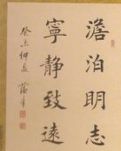 澹泊明志
寧静致遠
癸未仲夏